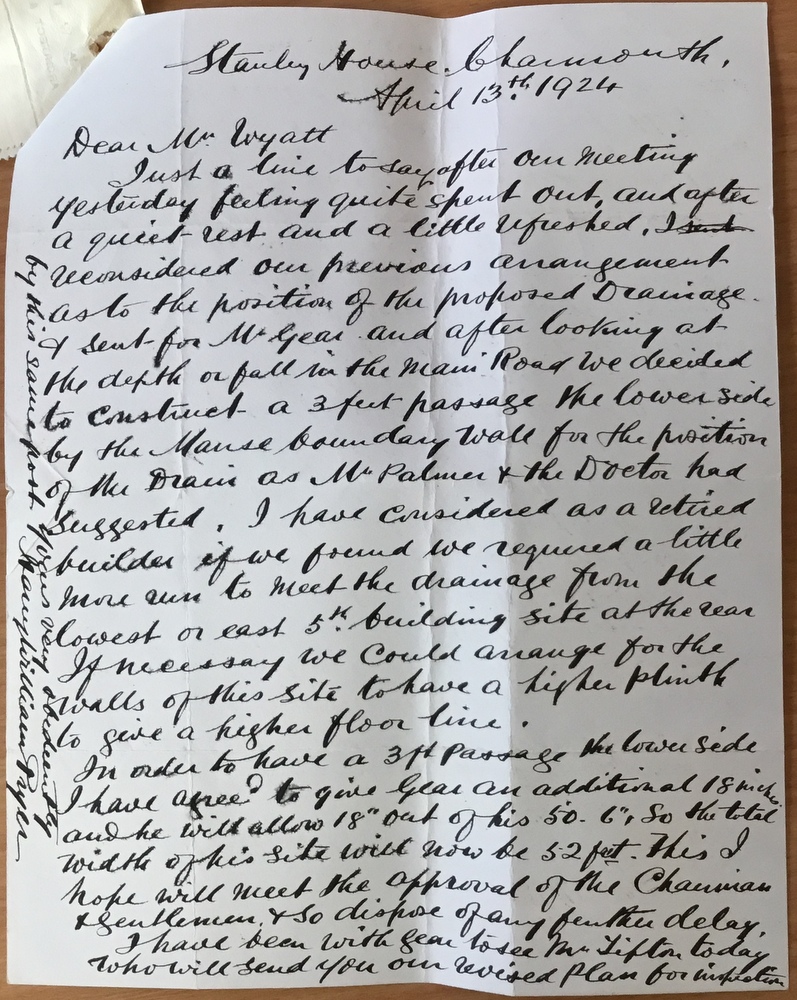 Stanley House. Charmouth,
April 13th. 1924
Dear Mr Wyatt
Just a line to say, after our meeting
yesterday feeling quite spent out, and after
a quiet rest and a little refreshed, I sent
reconsidered our previous arrangement
as to the position of the proposed Drainage.
& sent for Mr Gear and after looking at
the depth or fall in the Main Road we decided
to construct a 3 feet passage the lower side
by the Manse boundary wall for the position
of the Drain as Mr Palmer & the Doctor had
suggested. I have considered as a retired
builder if we found we required a little
more run to meet the drainage from the
lowest or east 5th building site at the rear
If necessary we could arrange for the
walls of this site to have a higher plinth
to give a higher floor line.
In order to have a 3ft passage the lower side
I have agreed to give Gear an additional 18 inchs.
and he will allow 18" out of his 50. 6", So the total
width of his site will now be 52 feet. This I
hope will meet the approval of the Chairman
& gentlemen, & so dispose of any further delay.
I have been with Gear to see Mr Tifton today
who will send you our revised plan for inspection
by this same post. Yours very obediently
Harry William Pryer